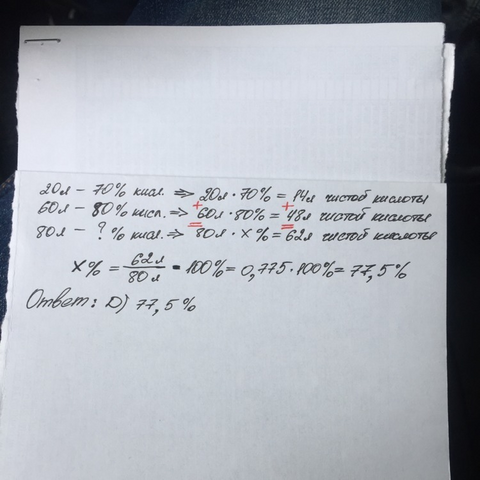 20л – 70% кисл. => 20л · 70% = 14л чистой кислоты
+ +
60л – 80% кисл. => 60л · 80% = 48л чистой кислоты
= =
80л – ? % кисл. => 80л · x % = 62л чистой кислоты
x% = 62л/80л · 100% = 0,775 · 100% = 77,5%
Ответ: D) 77,5%